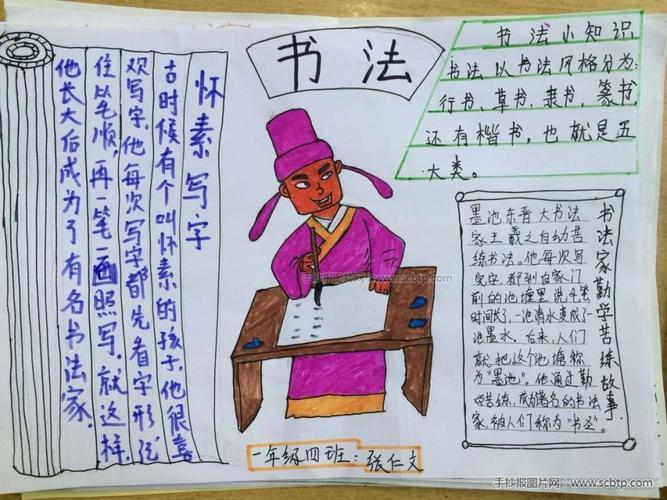 书法
怀素写字
古时候有个叫怀素的孩子,他很喜
欢写字,他每次写字都先看字形记
住笔顺,再一笔一画照写,就这样,
他长大后成为了有名书法家.
书法小知识
书法以书法风格分为:
行书、草书、隶书、篆书,
还有楷书,也就是五
大类。
书法家勤学苦练故事
墨池东晋大书法
家王羲之自幼苦
练书法。他每次写
完字,都到自家门
前的池塘里洗毛笔,
时间长了,一池清水变成了一
池墨水。后来,人们
就把这个池塘称
为"墨池"。他通过勤
学苦练,成著名的书法
家,被人们称为"书圣"。
一年级四班:张仁文
手抄报图片网 www.scbtp.com
手抄报图片网:www.scbtp.com